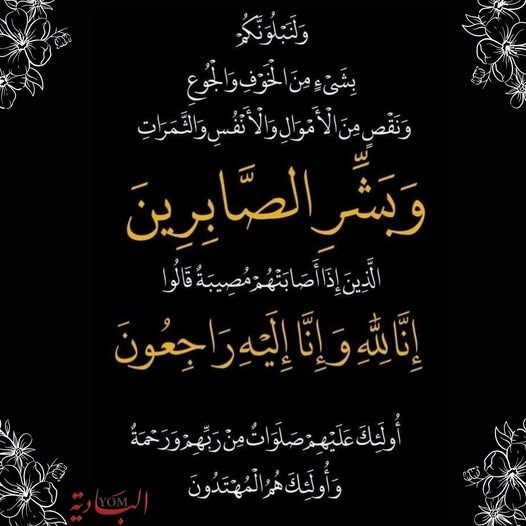 وَلَنَبْلُوَنَّكُمْ
بِشَىْءٍ مِنَ الْخَوْفِ وَالْجُوعِ
وَنَقْصٍ مِنَ الْأَمْوَالِ وَالْأَنْفُسِ وَالثَّمَرَاتِ
وَبَشِّرِ الصَّابِرِينَ
الَّذِينَ إِذَا أَصَابَتْهُمْ مُصِيبَةٌ قَالُوا
إِنَّا لِلَّهِ وَإِنَّا إِلَيْهِ رَاجِعُونَ
أُولَئِكَ عَلَيْهِمْ صَلَوَاتٌ مِنْ رَبِّهِمْ وَرَحْمَةٌ
وَأُولَئِكَ هُمُ الْمُهْتَدُونَ
البادية YOM